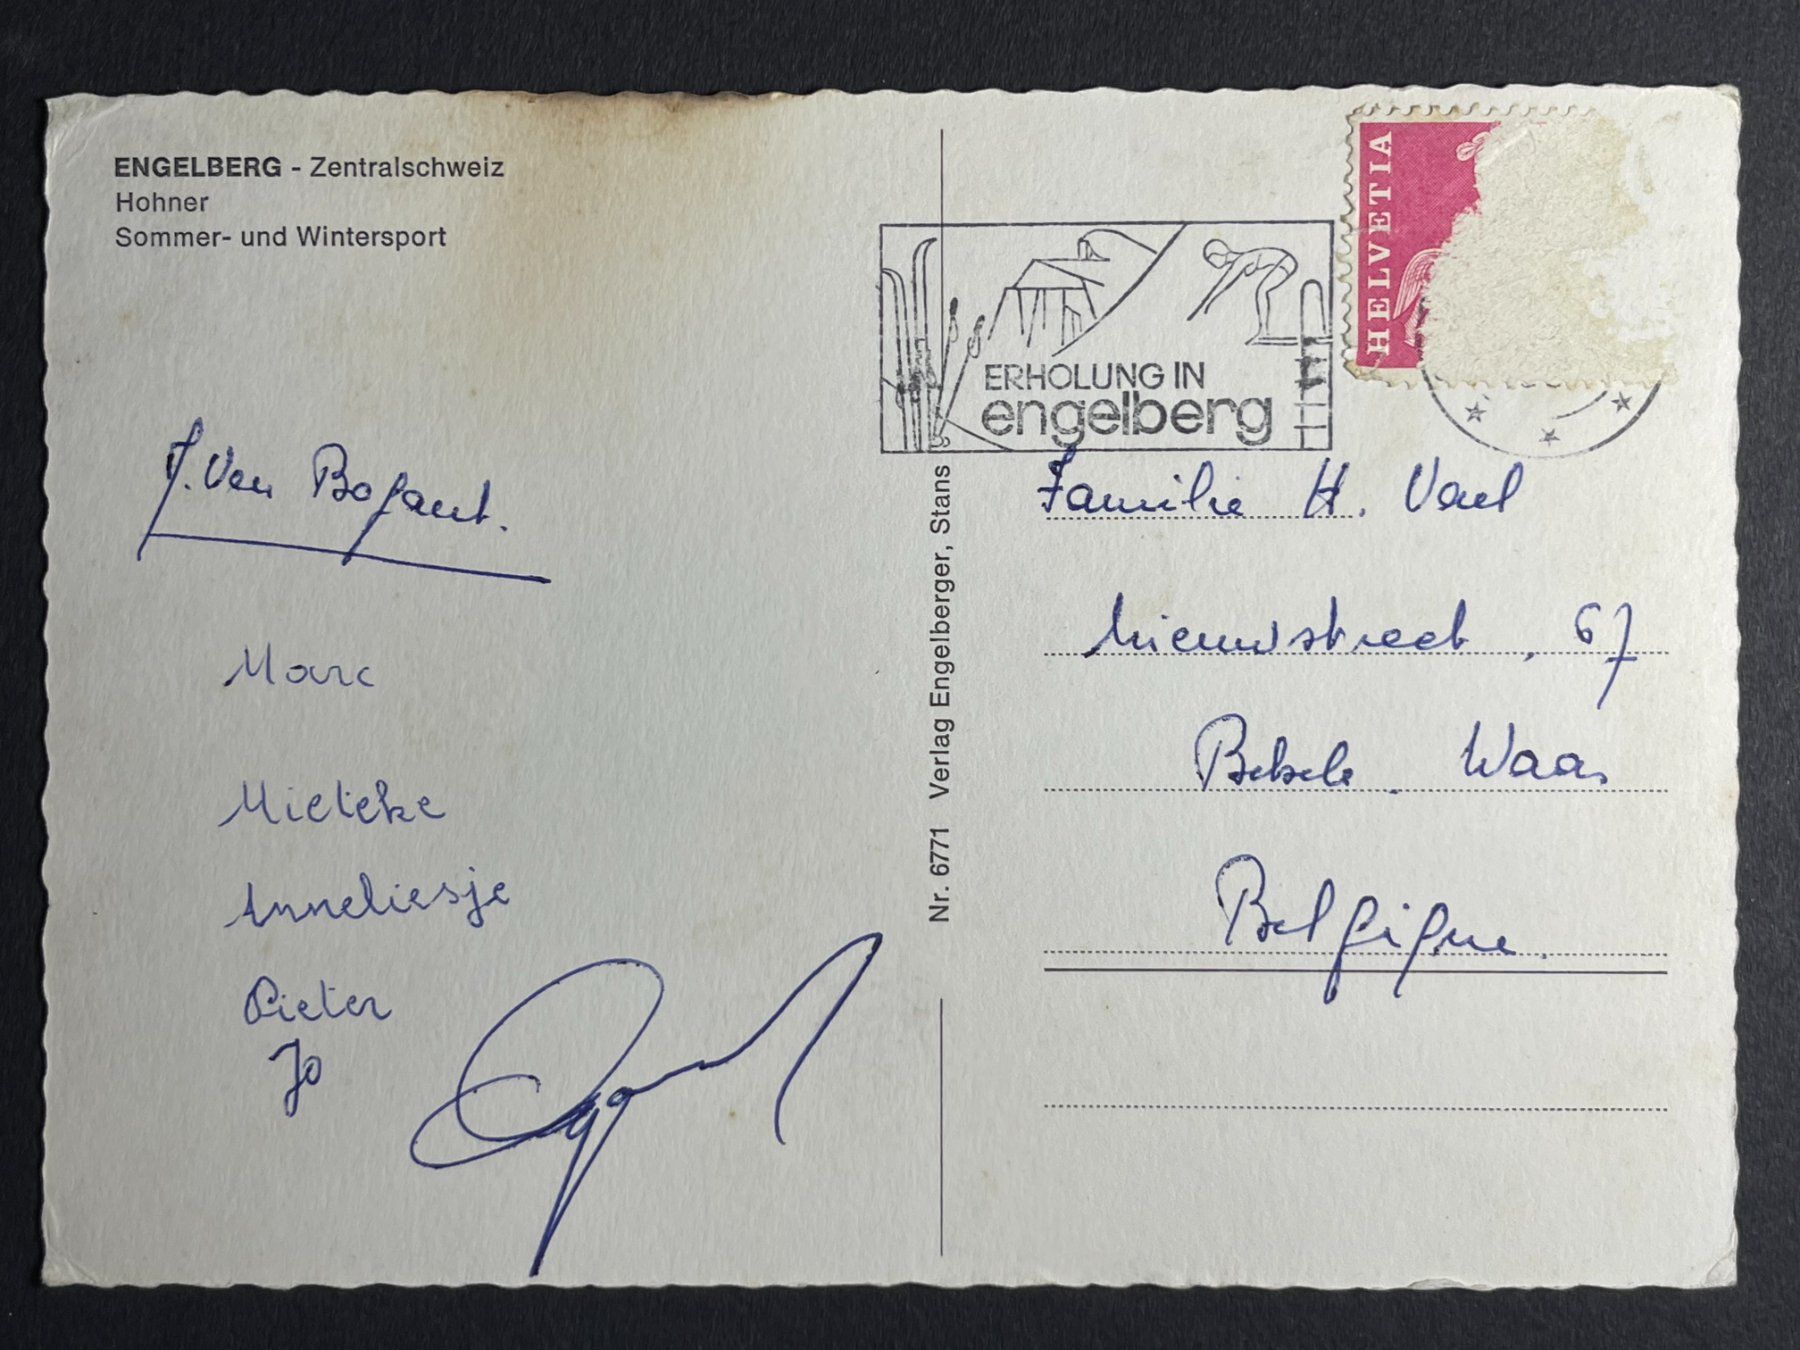 ENGELBERG - Zentralschweiz
Hohner
Sommer- und Wintersport
J. Van Bogaert.
Marc
Mieleke
Anneliesje
Pieter
Jo
Nr. 6771 Verlag Engelberger, Stans
HELVETIA
ERHOLUNG IN
engelberg
Familie H.
Nieuwstraat, 67
Waas
Belgique.